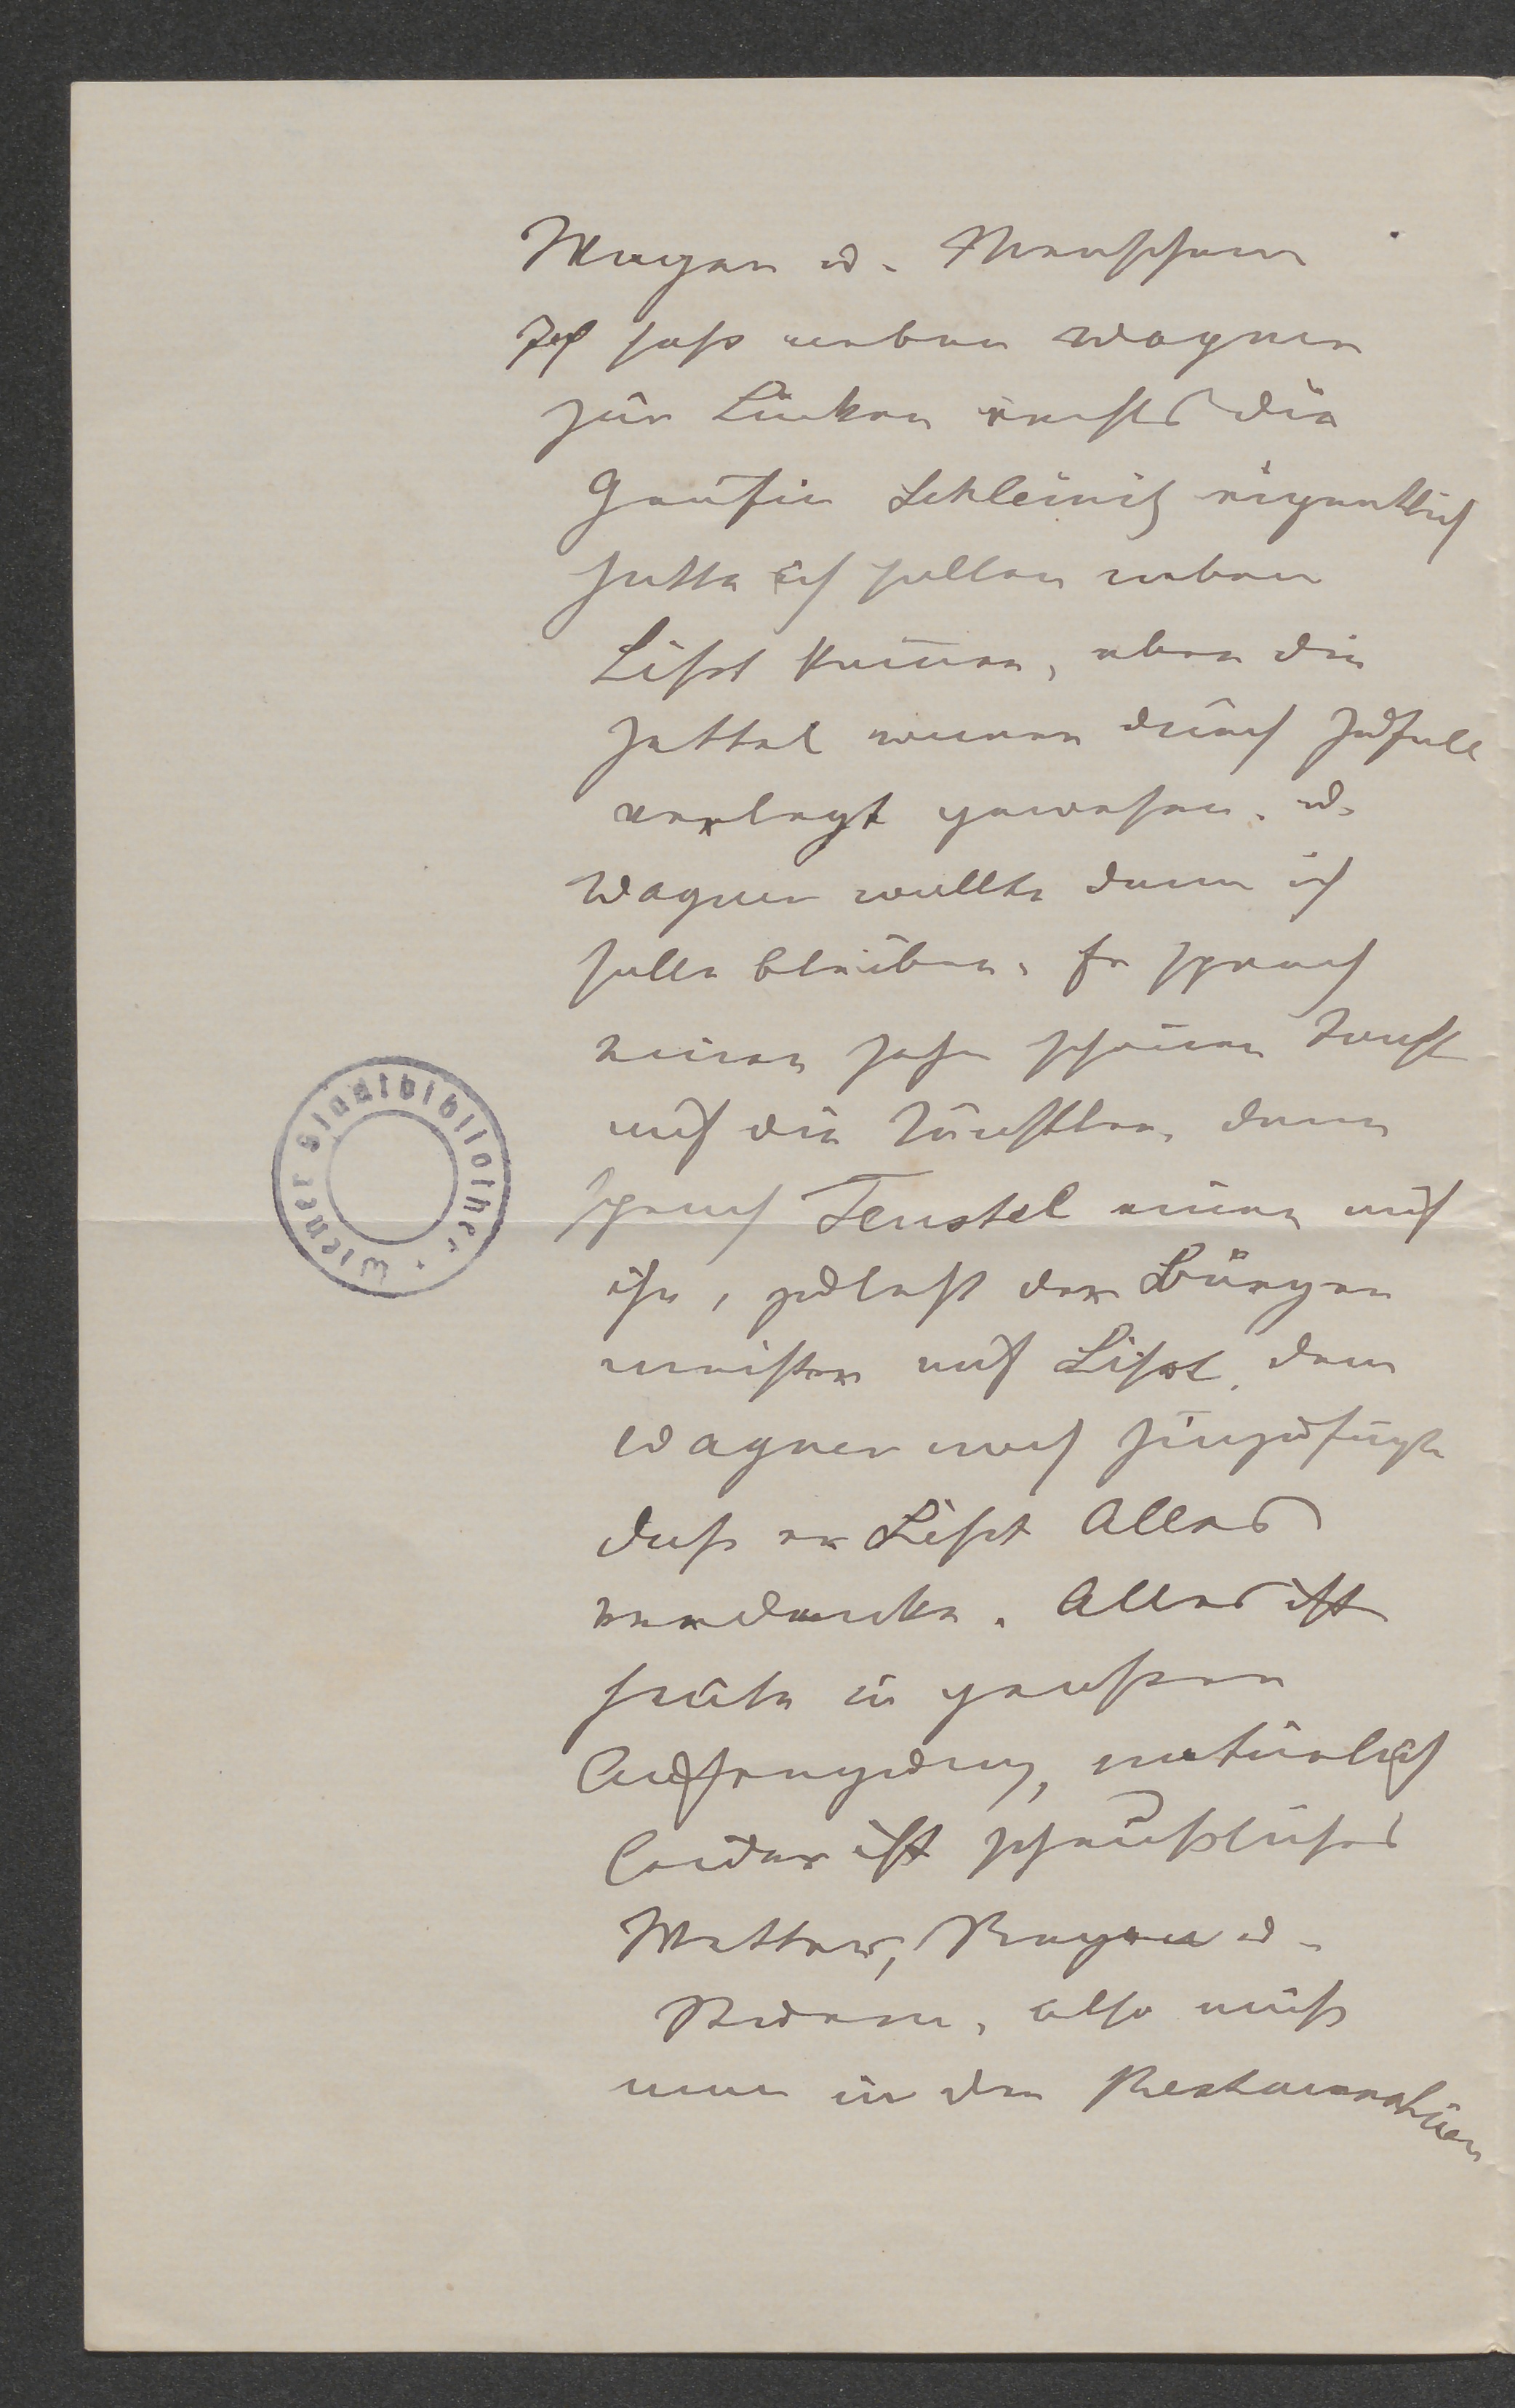 Wagen u. Menschen
Ich saß neben Wagner
zur Linken rechts die
Gräfin Schleinitz eigentlich
hätte ich sollen neben
Lißt kommen, aber die
Zettel waren durch Zufall
verlegt gewesen. u.
Wagner wollte dann ich
solle bleiben. Er sprach
einen sehr schönen Toast
auf die Künstler, dann
sprach Feustel einen auf
ihn, zuletzt der Bürger
meister auf Lißt, dem
Wagner noch hinzufügte
daß er Lißt Alles
verdanke. Alles ist
heute in großer
Aufregung, natürlich
leider ist scheußliches
Wetter, Regen u.
Sturm, also muß
man in der Restauration
Wiener Stadtbibliothek